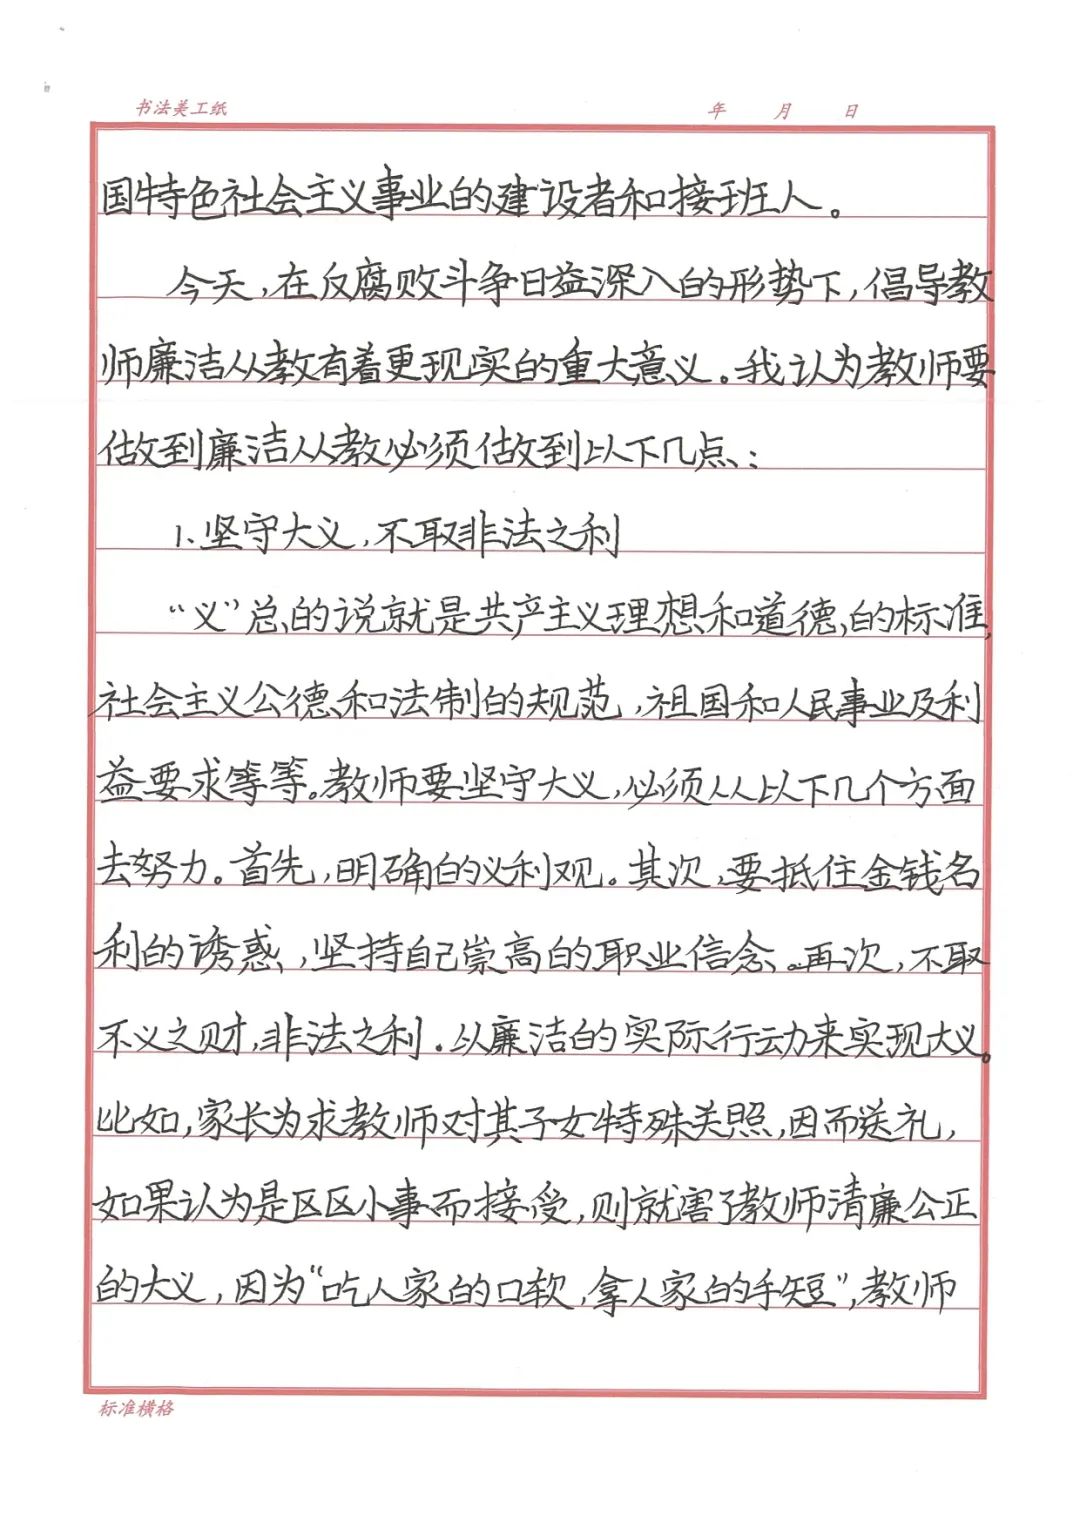 书法美工纸 年 月 日
国特色社会主义事业的建设者和接班人。
今天,在反腐败斗争日益深入的形势下,倡导教
师廉洁从教有着更现实的重大意义。我认为教师要
做到廉洁从教必须做到以下几点:
1.坚守大义,不取非法之利
“义”总的说就是共产主义理想和道德的标准,
社会主义公德和法制的规范,祖国和人民事业及利
益要求等等。教师要坚守大义,必须从以下几个方面
去努力。首先,明确的义利观。其次,要抵住金钱名
利的诱惑,坚持自己崇高的职业信念。再次,不取
不义之财,非法之利.以廉洁的实际行动来实现大义。
比如,家长为求教师对其子女特殊关照,因而送礼,
如果认为是区区小事而接受,则就害了教师清廉公正
的大义,因为“吃人家的口软,拿人家的手短”,教师
标准横格